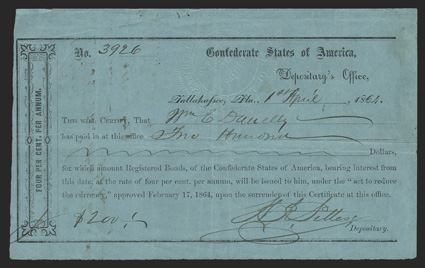 FOUR PER CENT. PER ANNUM.
No. 3926 Confederate States of America,
Depositary's Office,
Tallahassee, Fla., 1st April, 1864.
THIS WILL CERTIFY, That Wm E Danelly
has paid in at this office Two Hundred
Dollars,
for which amount Registered Bonds, of the Confederate States of America, bearing interest from
this date, at the rate of four per cent. per annum, will be issued to him, under the "act to reduce
the currency," approved February 17, 1864, upon the surrender of this Certificate at this office.
$200/
Depositary.